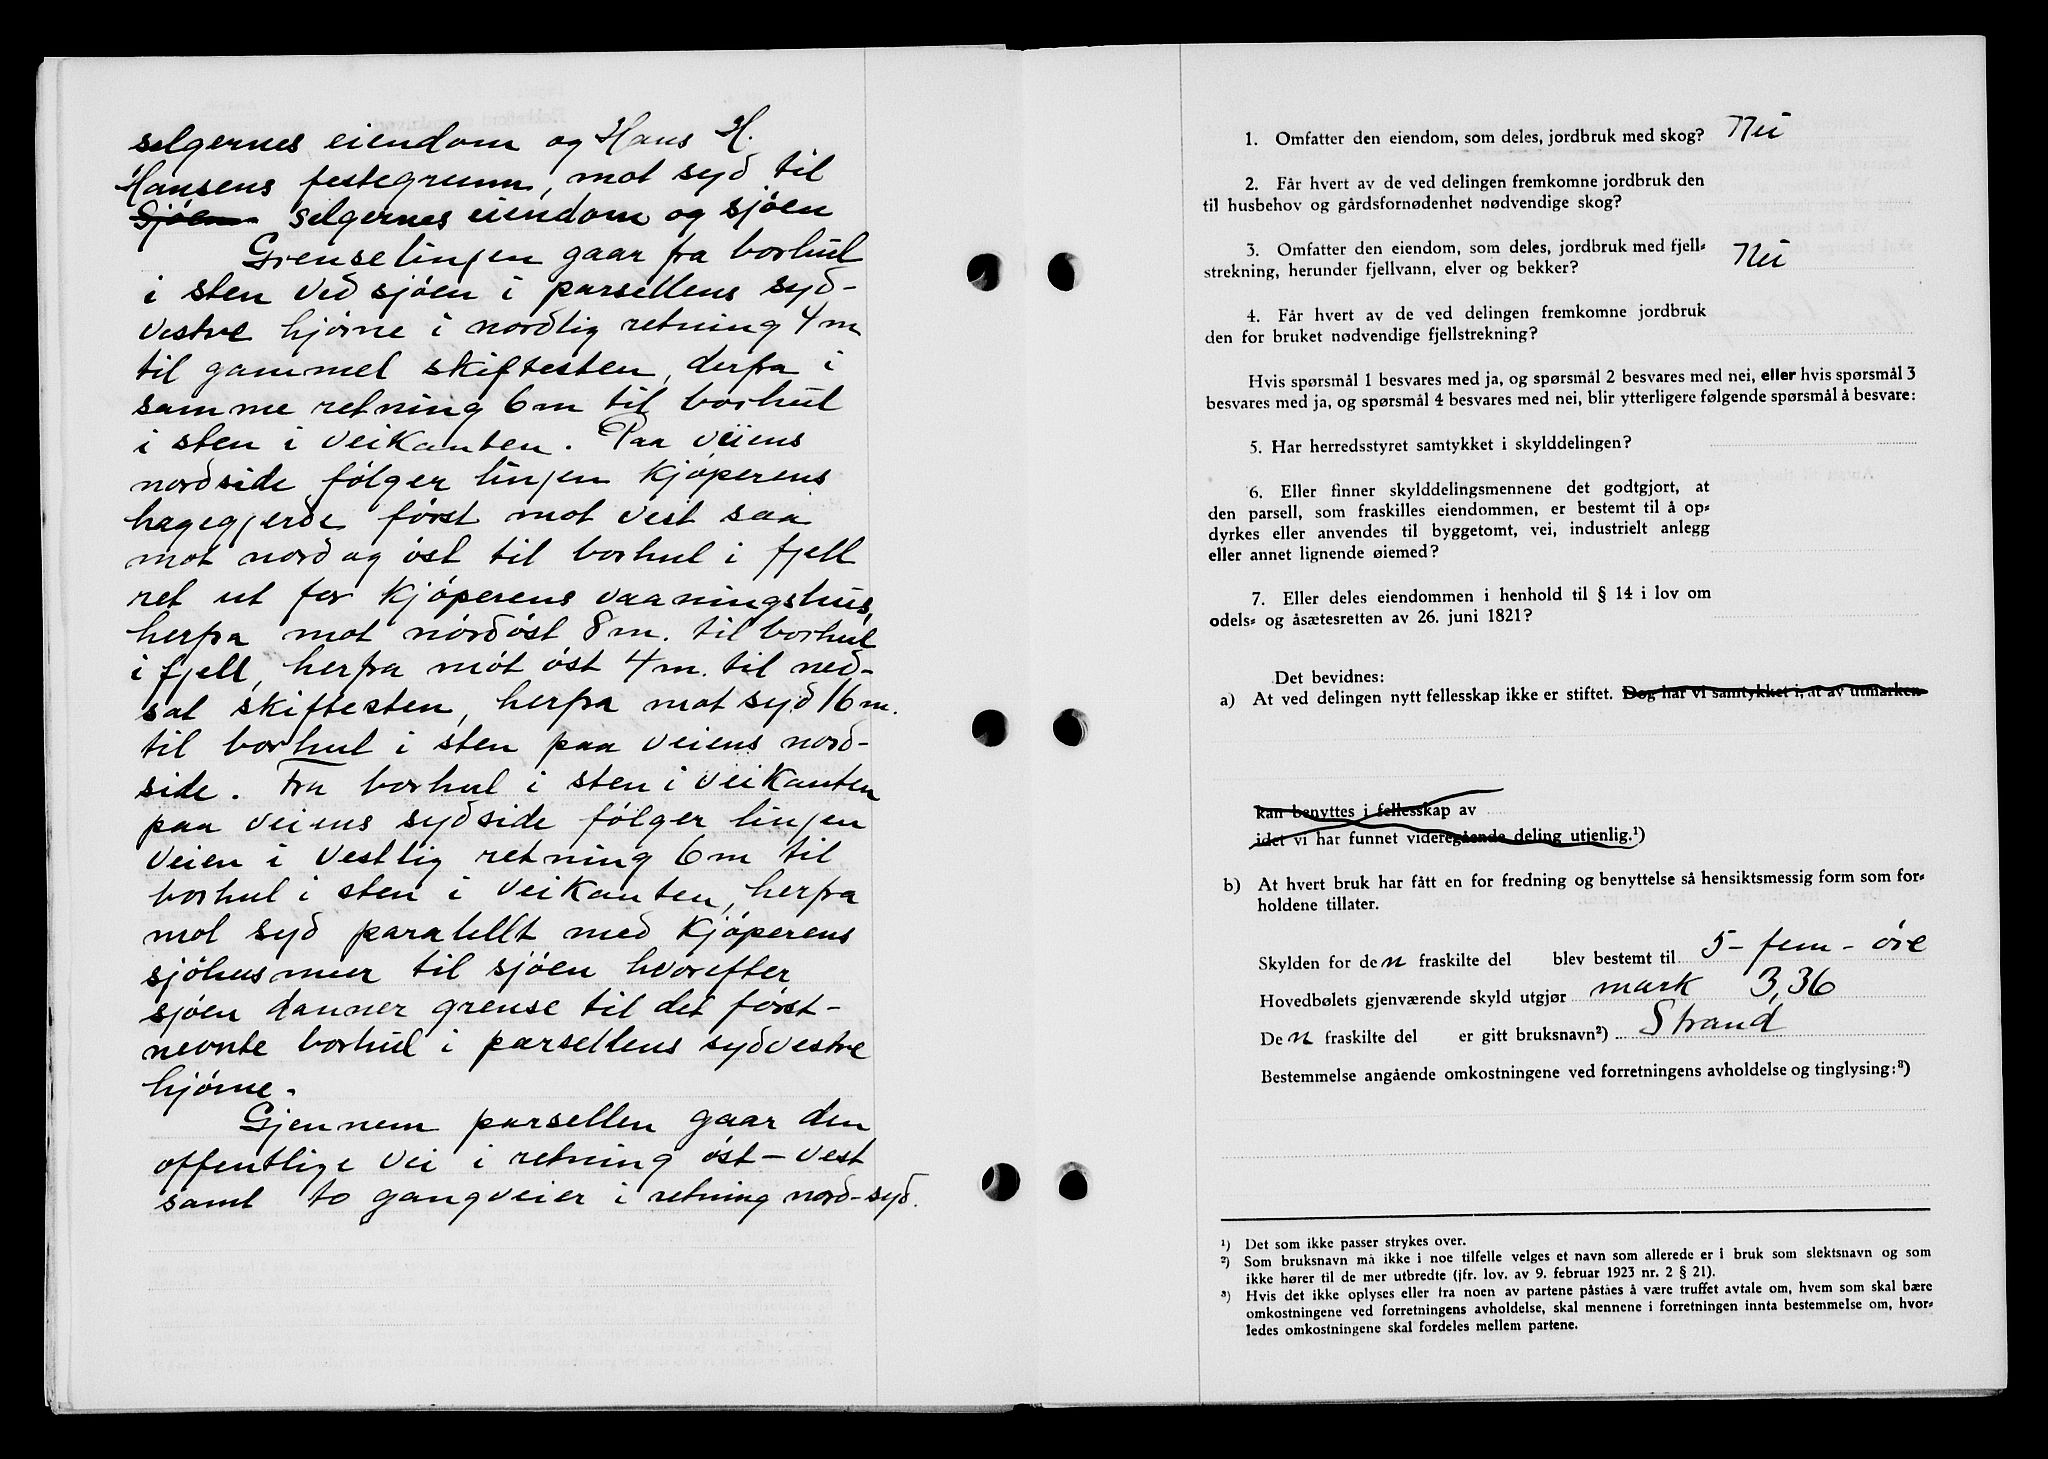 selgernes eiendom og Hans H.
Hansens festegrunn, mot syd til
Sjøen selgernes eiendom og sjøen
Grenselinjen gaar fra borhul
i sten ved sjøen i parsellens syd-
vestre hjørne i nordlig retning 4 m
til gammel skiftesten, derfra i
samme retning 6 m til borhul
i sten i veikanten. Paa veiens
nordside følger linjen kjøperens
hagegjerde først mot vest saa
mot nord og øst til borhul i fjell
ret ut for kjøperens vaaningshus,
herfra mot nordøst 8 m. til borhul
i fjell, herfra mot øst 4 m. til ned-
sat skiftesten, herfra mot syd 16 m.
til borhul i sten paa veiens nord-
side. Fra borhul i sten i veikanten
paa veiens sydside følger linjen
veien i vestlig retning 6 m til
borhul i sten i veikanten, herfra
mot syd paralellt med kjøperens
sjøhusmur til sjøen hvorefter
sjøen danner grense til det først-
nevnte borhul i parsellens sydvestre
hjørne.
Gjennem parsellen gaar den
offentlige vei i retning øst-vest
samt to gangveier i retning nord-syd.
1. Omfatter den eiendom, som deles, jordbruk med skog? Nei
2. Får hvert av de ved delingen fremkomne jordbruk den
til husbehov og gårdsfornødenhet nødvendige skog?
3. Omfatter den eiendom, som deles, jordbruk med fjell-
strekning, herunder fjellvann, elver og bekker? Nei
4. Får hvert av de ved delingen fremkomne jordbruk
den for bruket nødvendige fjellstrekning?
Hvis spørsmål 1 besvares med ja, og spørsmål 2 besvares med nei, eller hvis spørsmål 3
besvares med ja, og spørsmål 4 besvares med nei, blir ytterligere følgende spørsmål å besvare:
5. Har herredsstyret samtykket i skylddelingen?
6. Eller finner skylddelingsmennene det godtgjort, at
den parsell, som fraskilles eiendommen, er bestemt til å op-
dyrkes eller anvendes til byggetomt, vei, industrielt anlegg
eller annet lignende øiemed?
7. Eller deles eiendommen i henhold til § 14 i lov om
odels- og åsætesretten av 26. juni 1821?
Det bevidnes:
a) At ved delingen nytt fellesskap ikke er stiftet. Dog har vi samtykket i, at av utmarken
kan benyttes i fellesskap av
idet vi har funnet videregående deling utjenlig.¹)
b) At hvert bruk har fått en for fredning og benyttelse så hensiktsmessig form som for-
holdene tillater.
Skylden for den fraskilte del blev bestemt til 5 - fem - øre
Hovedbølets gjenværende skyld utgjør mark 3,36
Den fraskilte del er gitt bruksnavn²) Strand
Bestemmelse angående omkostningene ved forretningens avholdelse og tinglysing:³)
¹) Det som ikke passer strykes over.
²) Som bruksnavn må ikke i noe tilfelle velges et navn som allerede er i bruk som slektsnavn og som
ikke hører til de mer utbredte (jfr. lov. av 9. februar 1923 nr. 2 § 21).
³) Hvis det ikke oplyses eller fra noen av partene påståes å være truffet avtale om, hvem som skal bære
omkostningene ved forretningens avholdelse, skal mennene i forretningen innta bestemmelse om, hvor-
ledes omkostningene skal fordeles mellem partene.